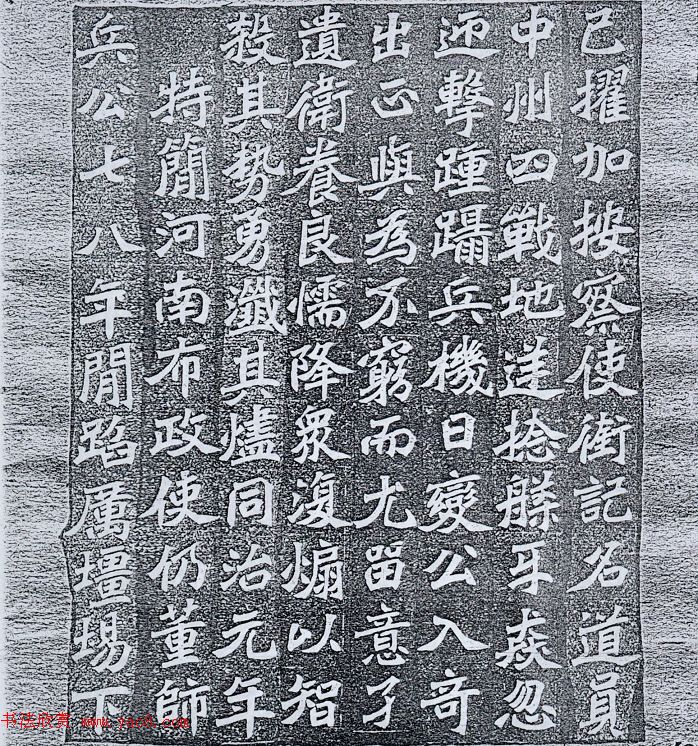 已擢加按察使銜記名道員
中州四戰地逢捻髹牙猋忽
迎擊踵躡兵機日變公入奇
出正與為不窮而尤留意孑
遺衛養良懦降眾復煽以智
殺其勢勇殲其燼同治元年
特簡河南布政使仍董師
兵公七八年閒蹈厲壃場下
书法欣赏 www.yac8.com